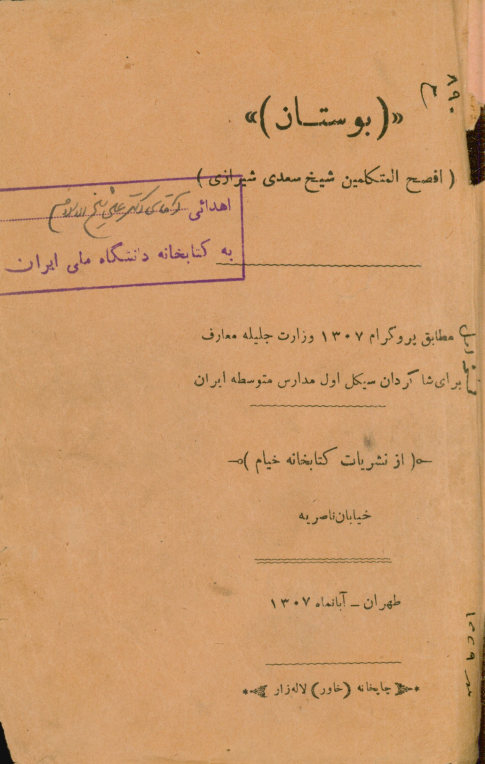 «(بوستـان)»
(افصح المتکلمین شیخ سعدی شیرازی)
اهدائی آقای دکتر علی شیخ الاسلام
به کتابخانه دانشگاه ملی ایران
مطابق پروگرام ۱۳۰۷ وزارت جلیله معارف
برای شاگردان سیکل اول مدارس متوسطه ایران
(از نشریات کتابخانه خیام)
خیابان ناصریه
طهران ـ آبانماه ۱۳۰۷
چاپخانه (خاور) لاله‌زار